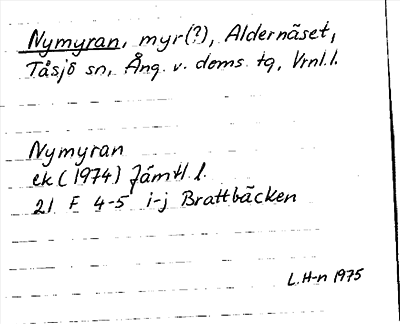 Nymyran, myr(?), Aldernäset,
Tåsjö sn, Ång. v. doms. tg, Vrnl. l.
Nymyran
ek (1974) Jämtl. l.
21 F 4-5 i-j Brattbäcken
L. H-n 1975